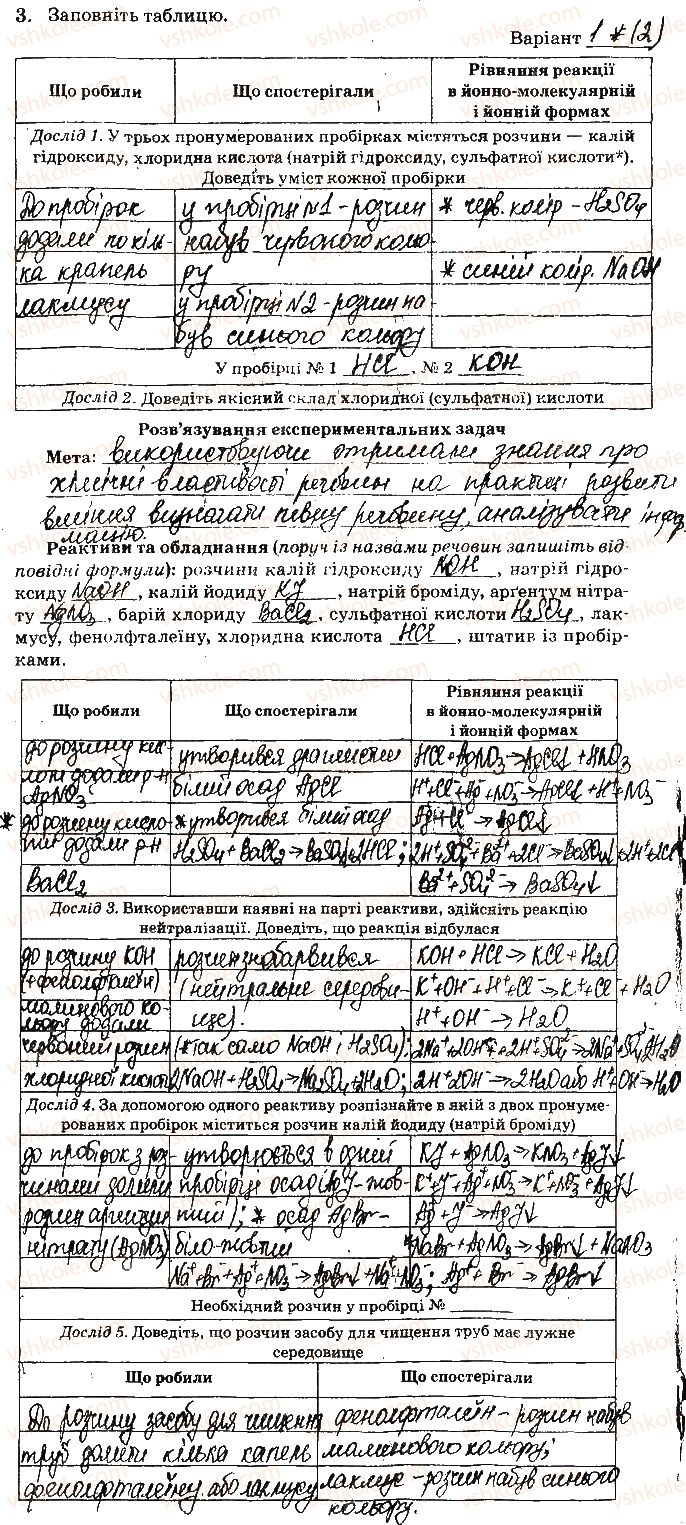 3. Заповніть таблицю.
Варіант 1 * (2)
Що робили
Що спостерігали
Рівняння реакції
в йонно-молекулярній
і йонній формах
Дослід 1. У трьох пронумерованих пробірках містяться розчини — калій
гідроксиду, хлоридна кислота (натрій гідроксиду, сульфатної кислоти*).
Доведіть уміст кожної пробірки
До пробірок
додали по кіль-
ка крапель
лакмусу
у пробірці №1 - розчин
набув червоного кольо-
ру
у пробірці №2 - розчин на-
був синього кольору
* черв. колір - H₂SO₄
* синей колір. NaOH
У пробірці № 1 HCl , № 2 KOH
Дослід 2. Доведіть якісний склад хлоридної (сульфатної) кислоти
Розв'язування експериментальних задач
Мета: використовуючи отримані знання про
хімічні властивості речовин на практиці розвити
вміння визначати певну речовину, аналізувати інфор-
мацію.
Реактиви та обладнання (поруч із назвами речовин запишіть від-
повідні формули): розчини калій гідроксиду KOH , натрій гідро-
ксиду NaOH , калій йодиду KJ , натрій броміду, арґентум нітра-
ту AgNO₃ , барій хлориду BaCl₂ , сульфатної кислоти H₂SO₄ , лак-
мусу, фенолфталеїну, хлоридна кислота HCl , штатив із пробір-
ками.
Що робили
Що спостерігали
Рівняння реакції
в йонно-молекулярній
і йонній формах
до розчину кис-
лоти додали р-н
AgNO₃
утворився драглистий
білий осад AgCl
HCl + AgNO₃ → AgCl↓ + HNO₃
H⁺+Cl⁻+Ag⁺+NO₃⁻→AgCl↓+H⁺+NO₃⁻
Ag⁺+Cl⁻→AgCl↓
* до розчину кисло-
ти додали р-н
BaCl₂
* утворився білий осад
H₂SO₄+BaCl₂→BaSO₄↓+2HCl; 2H⁺+SO₄²⁻+Ba²⁺+2Cl⁻→BaSO₄↓+2H⁺+2Cl⁻
Ba²⁺+SO₄²⁻→BaSO₄↓
Дослід 3. Використавши наявні на парті реактиви, здійсніть реакцію
нейтралізації. Доведіть, що реакція відбулася
до розчину KOH
(+фенолфталеїн)
малинового ко-
льору додали
червоний розчин
хлоридної кислоти
розчин знебарвився
(нейтральне середови-
ще).
(*так само NaOH і H₂SO₄):
KOH + HCl → KCl + H₂O
K⁺+OH⁻+H⁺+Cl⁻→K⁺+Cl⁻+H₂O
H⁺+OH⁻→H₂O
2Na⁺+2OH⁻+2H⁺+SO₄²⁻→2Na⁺+SO₄²⁻+2H₂O
2NaOH+H₂SO₄→Na₂SO₄+2H₂O; 2H⁺+2OH⁻→2H₂O або H⁺+OH⁻→H₂O
Дослід 4. За допомогою одного реактиву розпізнайте в якій з двох пронуме-
рованих пробірок міститься розчин калій йодиду (натрій броміду)
до пробірок з роз-
чинами долили
розчин аргентум
нітрату (AgNO₃)
утворюється в одній
пробірці осад (AgJ-жов-
тий); * осад AgBr-
біло-жовтий
KJ + AgNO₃→KNO₃+AgJ↓
K⁺+J⁻+Ag⁺+NO₃⁻→K⁺+NO₃⁻+AgJ↓
Ag⁺+J⁻→AgJ↓
*NaBr+AgNO₃→AgBr↓+NaNO₃
Na⁺+Br⁻+Ag⁺+NO₃⁻→AgBr↓+Na⁺+NO₃⁻; Ag⁺+Br⁻→AgBr↓
Необхідний розчин у пробірці №
Дослід 5. Доведіть, що розчин засобу для чищення труб має лужне
середовище
Що робили
Що спостерігали
До розчину засобу для чищення
труб долити кілька капель
фенолфталеїну або лакмусу
фенолфталеїн - розчин набув
малинового кольору;
лакмус - розчин набув синього
кольору.